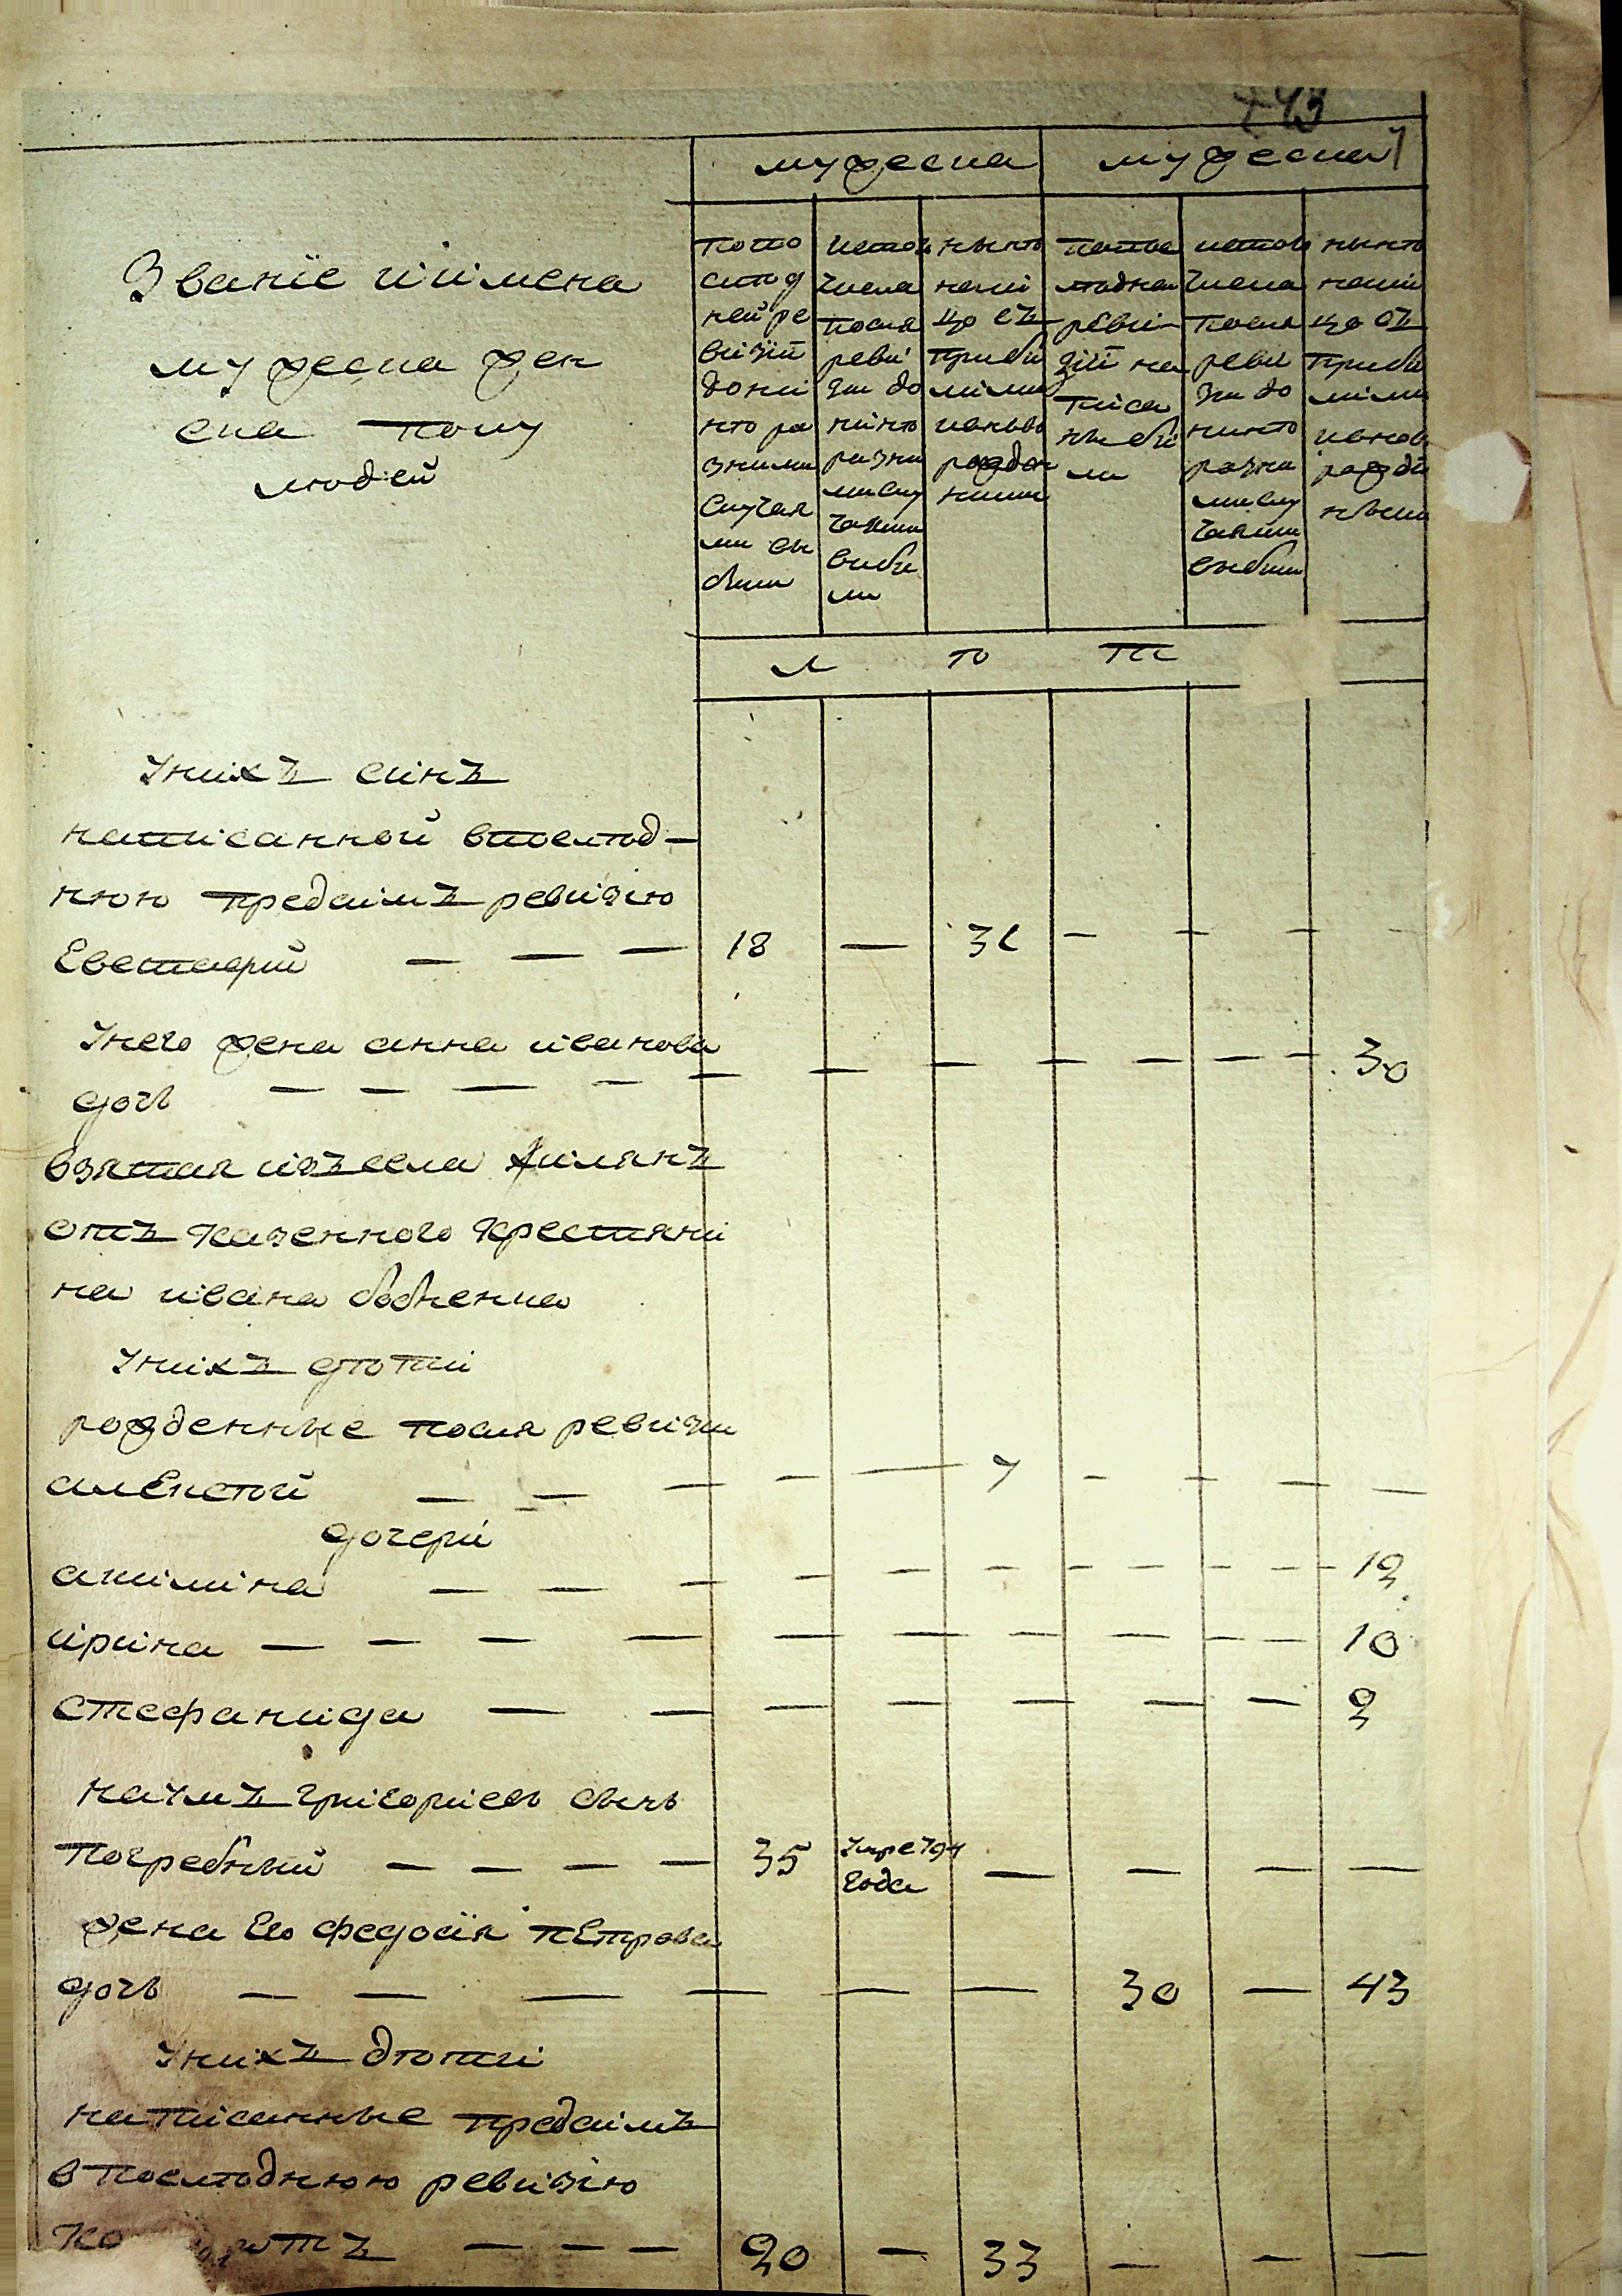 743
мужеска мужеска
Званїе иїмена
мужеска жен
ска полу
людей
по по
слѣд
ней ре
визїи
до ни
нѣ ра
зними
случая
ми вы
были
ис того
числа
посля
реви
зїи до
нинѣ
разни
ми слу
чаями
виби
ли
нынѣ
налї
цо съ
приби
лїми
и вновь
рожден
ними
по пос
лѣдней
реви
зїи на
писа
ны бы
ли
ис того
числа
посля
реви
зїи до
нинѣ
разни
ми слу
чаями
выбыли
нынѣ
налїи
цо съ
приби
лїми
и вновь
рожде
ными
л ѣ та
Унихъ синъ
написанной впослѣд—
нюю предсимъ ревизїю
Евстафий — — — 18 — 31 — — — —
Унего жена анна иванова
дочь — — — — — — — — — — — 30
взятая изъ села
отъ казенного крестяни
на ивана бобненка
Унихъ дѣти
рожденные посля ревизии
алексѣй — — — — — 7 — — — —
дочери
акилина — — — — — — — — — — 12
ирина — — — — — — — — — — 10
стефанида — — — — — — — 2
наумъ григориевъ сынъ
погребный — — — — 35 Умре794 года — — — —
жена Его федосїя пЕтрова
дочь — — — — — — 30 — 43
Унихъ дѣти
написанные предсимъ
в послѣднюю ревизїю
— — — 20 — 33 — — —